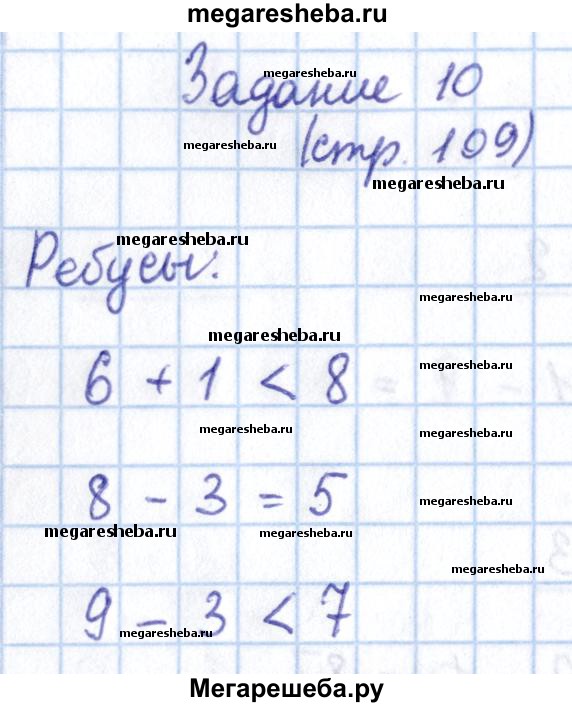 megaresheba.ru
Задание 10
megaresheba.ru
megaresheba.ru
(стр. 109)
megaresheba.ru
megaresheba.ru
Ребусы:
megaresheba.ru
megaresheba.ru
megaresheba.ru
6 + 1 < 8
megaresheba.ru
megaresheba.ru
8 - 3 = 5
megaresheba.ru
megaresheba.ru
megaresheba.ru
megaresheba.ru
9 - 3 < 7
megaresheba.ru
Мегарешеба.ру